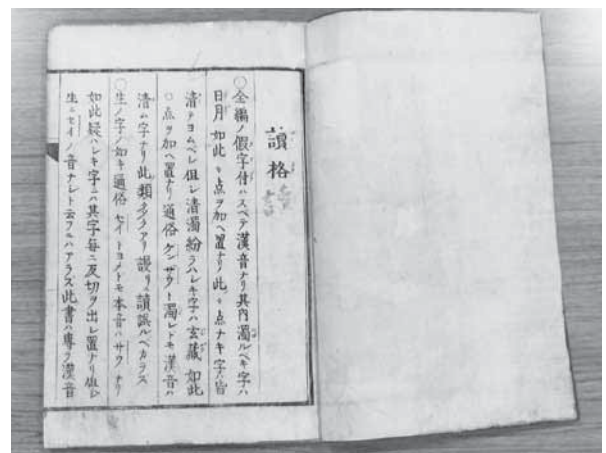 讀格
○全編ノ假字付ハスベテ漢音ナリ其内濁ルベキ字ハ
日月如此ニ点ヲ加ヘ置ナリ此ニ点ナキ字ハ皆
清テヨムベシ但シ清濁紛ラハシキ字ハ玄藏如此
○点ヲ加ヘ置ナリ通俗ゲンザウト濁レトモ漢音ハ
清ム字ナリ此類多クアリ誤リ讀誤ルベカラス
○生ノ字ノ如キ通俗セイトヨメトモ本音ハサウナリ
如此疑ハシキ字ニハ其字毎ニ反切ヲ出シ置ナリ但シ
生ニセイノ音ナシト云フニハアラス此書ハ專ラ漢音